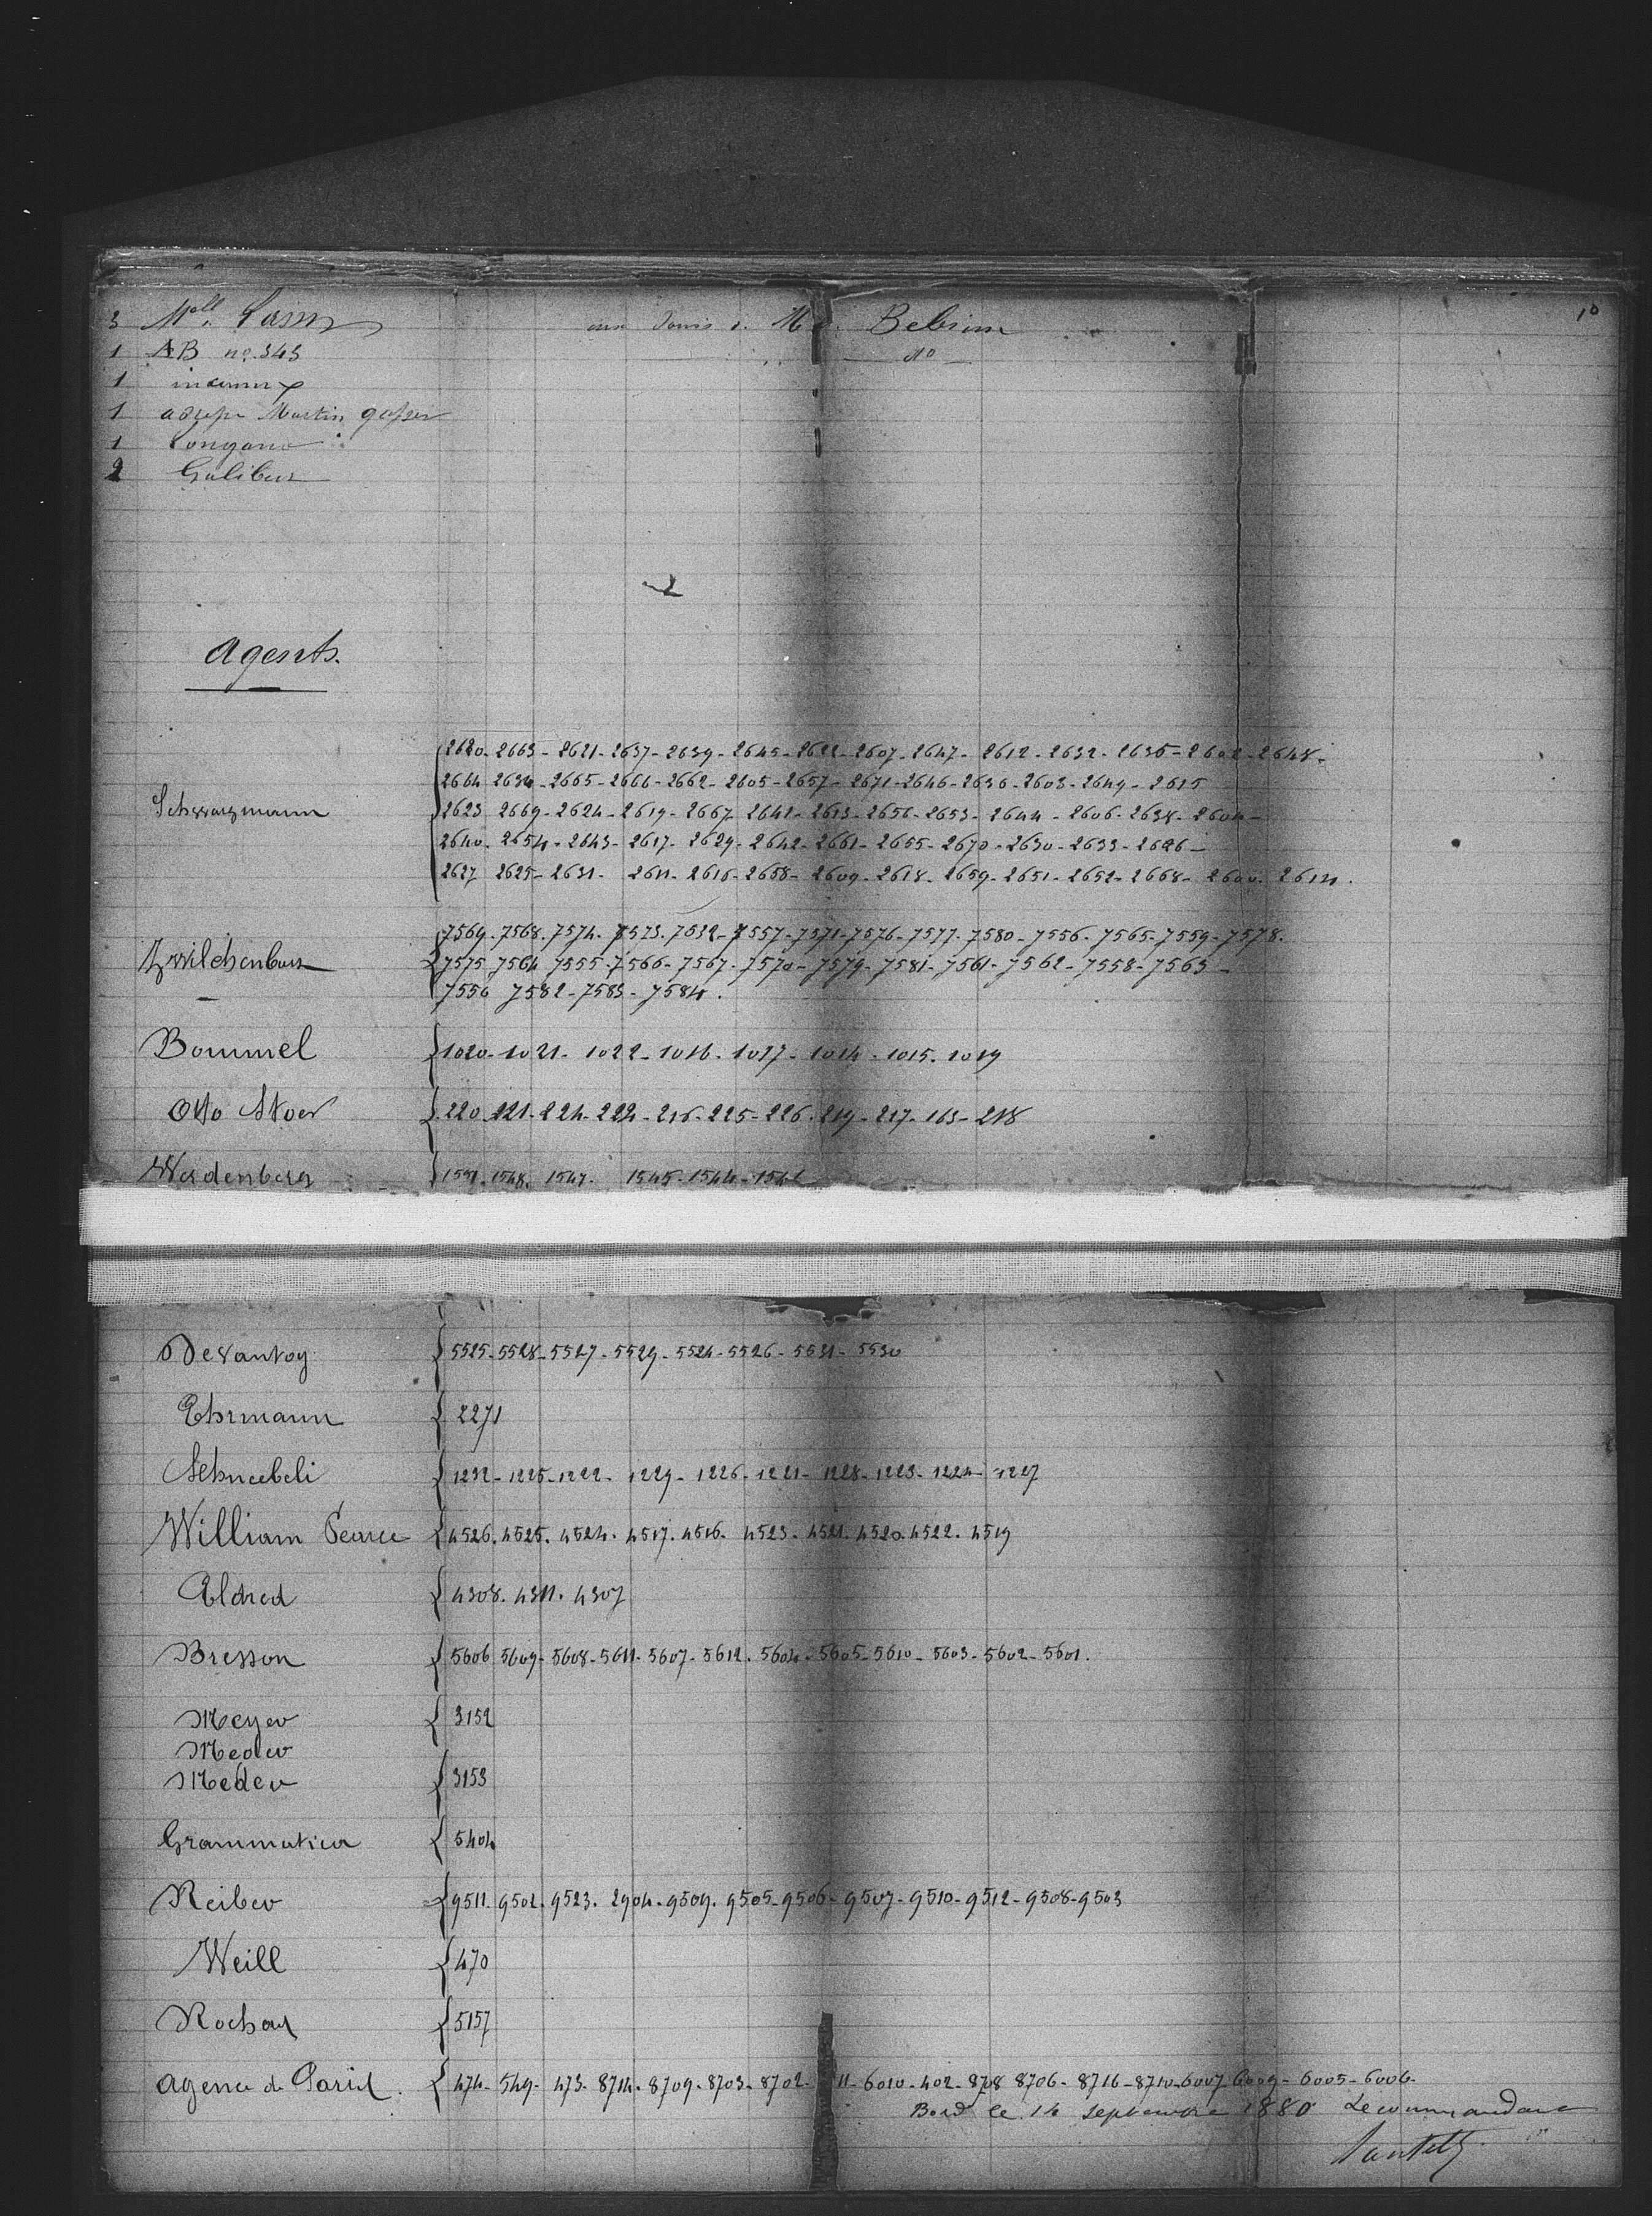 10
3 Mall.
1 AB no. 343 do
1 inconnu
1 Martin
1
2
Agents.
Schwarzmann
2620. 2663 - 2621 - 2637 - 2639 - 2645 - 2622 - 2607 - 2647 - 2612 - 2632 - 2635 - 2602 - 2648 -
2664 2634 - 2665 - 2666 - 2662 - 2605 - 2657 - 2671 - 2646 - 2636 - 2603 - 2649 - 2615
2623 2669 - 2624 - 2619 - 2667 2641 - 2613 - 2656 - 2653 - 2644 - 2606 - 2638 - 2604 -
2640 - 2654 - 2643 - 2617 - 2629 - 2642 - 2661 - 2655 - 2670 - 2630 - 2633 - 2626 -
2627 2625 - 2631 - 2611 - 2616 - 2658 - 2609 - 2618 - 2659 - 2651 - 2652 - 2668 - 2600 - 2614.
Zwilchenbart
7569 - 7568 - 7574 - 7573 - 7632 - 7557 - 7571 - 7576 - 7577 - 7580 - 7556 - 7565 - 7559 - 7578.
7575 7564 7555 - 7566 - 7567 - 7570 - 7579 - 7581 - 7561 - 7562 - 7558 - 7563 -
7556 7582 - 7583 - 7584.
Bommel { 1020 - 1021 - 1022 - 1016 - 1017 - 1014 - 1015. 1019
Otto Stoer { 220 221 - 224 - 222 - 216 - 225 - 226 - 219 - 217 - 163 - 218
Werdenberg { 1551. 1548. 1547. 1545 - 1544 -
Devantoy { 5525 - 5528 - 5527 - 5529 - 5524 - 5526 - 5531 - 5530
Ehrmann { 2271
Schneebeli { 1232 - 1225 - 1222 - 1229 - 1226 - 1221 - 1228 - 1223 - 1224 - 1227
William Pearce { 4526. 4525. 4524. 4517. 4516. 4523. 4521. 4520. 4522. 4519
Eldred { 4308. 4311. 4307
Bresson { 5606 5609 - 5608 - 5611 - 5607 - 5612. 5604 - 5605 - 5610 - 5603 - 5602 - 5601.
Meyer { 3152
Meder
Meder { 3153
Grammatica { 5404
Reiber { 9511. 9502. 9523. 2904. 9509. 9505 - 9506 - 9507 - 9510 - 9512 - 9508 - 9503
Weill { 470
Rochat { 5157
Agence de Paris. { 474 - 549 - 473 - 8714 - 8709 - 8703 - 8702 - 11 - 6010 - 402 - 8708 8706 - 8716 - 8710 - 6007 - 6009 - 6005 - 6006.
Bord le 14 septembre 1880 Le commandant